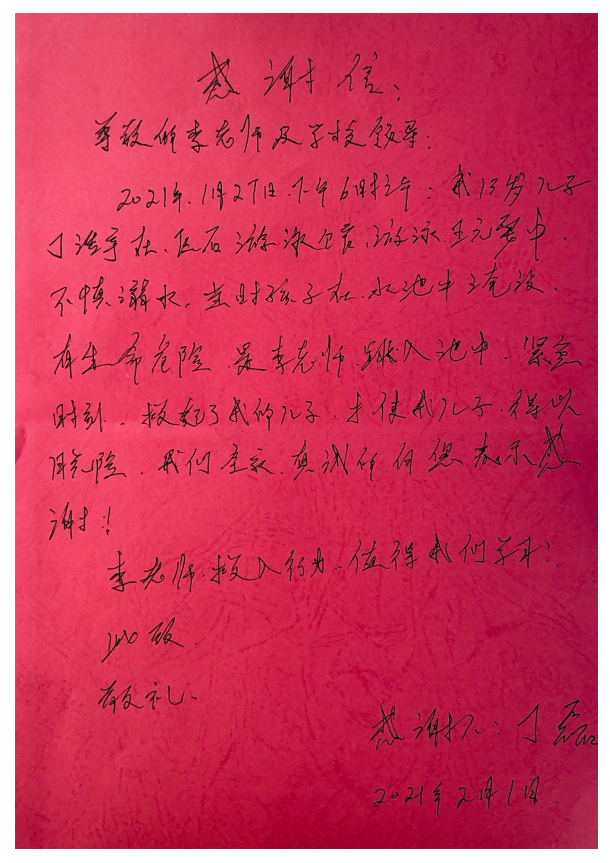 感谢信:
尊敬的李老师及学校领导:
2021年1月27日下午6时左右:我13岁儿子
丁浩宇在 游泳
不慎溺水,当时孩子在水池中淹没,
有生命危险,是李老师跳入池中,紧急
时刻,救起了我的儿子,才使我儿子得以
脱险,我们全家真诚的向您表示感
谢!!
李老师救人行为,值得我们学习!
此致
敬礼。
感谢人:丁磊
2021年2月1日